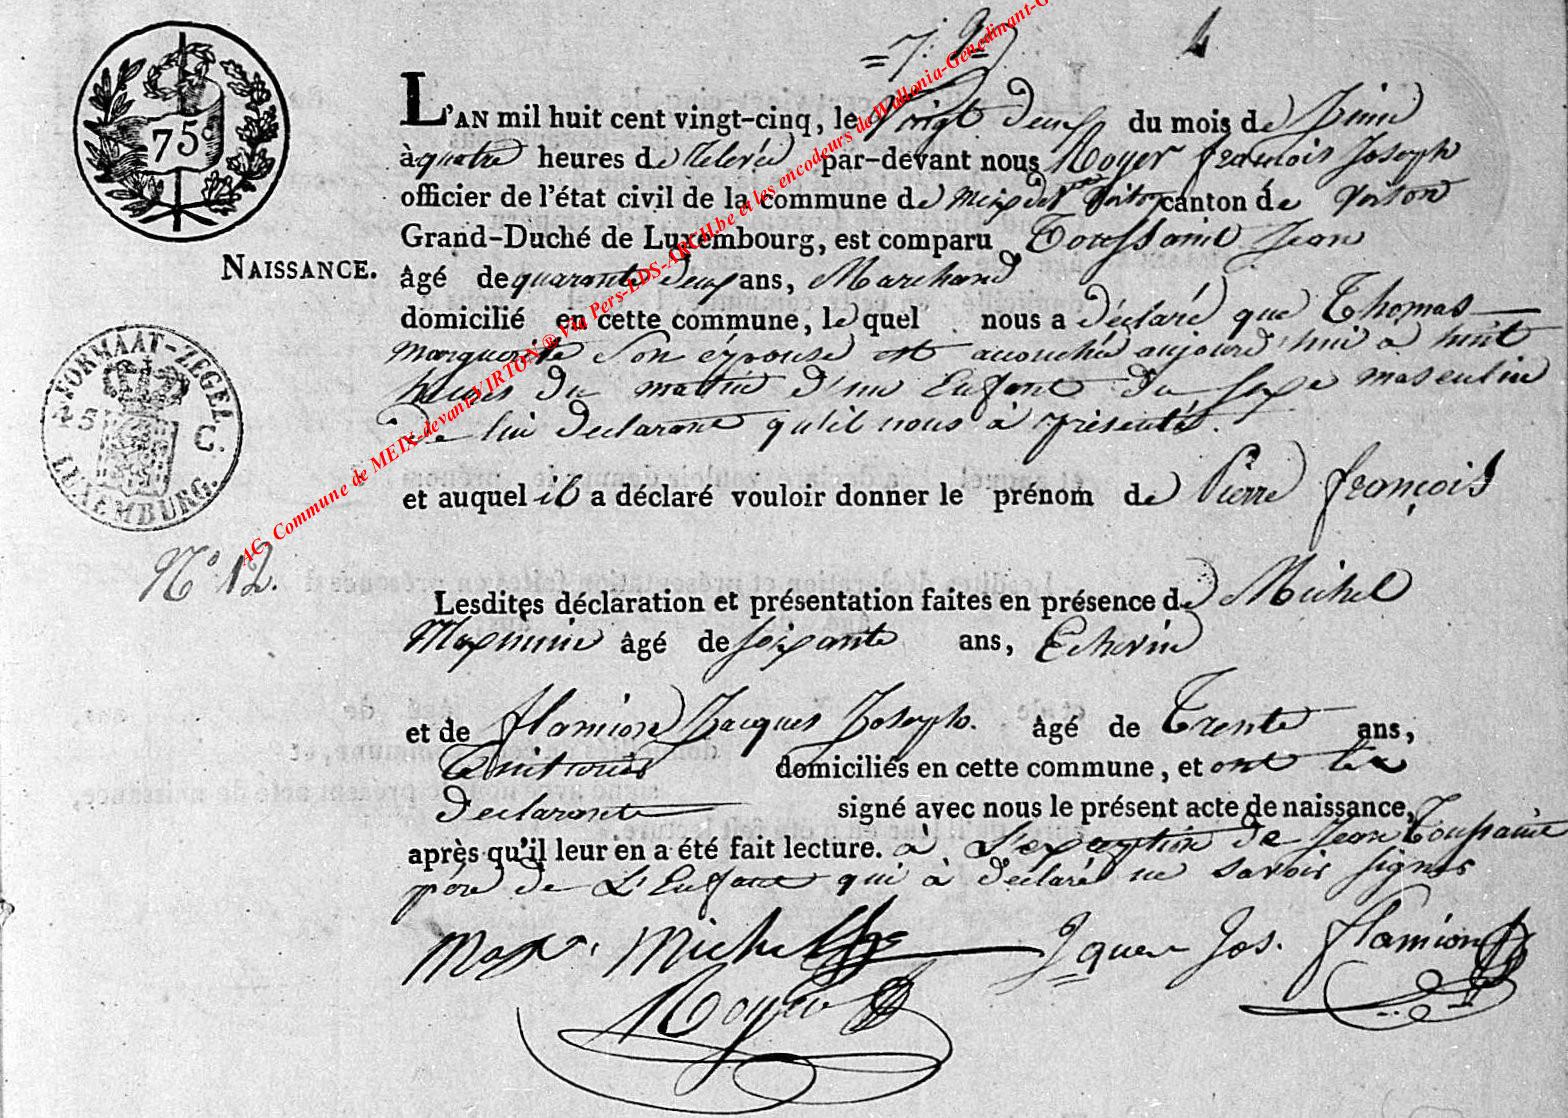 =7: 2=
75c
L'AN mil huit cent vingt-cinq, le Vingt deux du mois de Juin
à quatre heures de relevée par-devant nous Noyer françois Joseph
officier de l'état civil de la commune de Meix devt Virton canton de Virton
Grand-Duché de Luxembourg, est comparu Toussaint Jean
NAISSANCE.
âgé de quarante deux ans, Marchand
domicilié en cette commune, le quel nous a déclaré que Thomas
Marguerite Son épouse est accouchée aujourd'hui a huit
heures du matin d'un Enfant du Sexe masculin
De lui Declarant qu'il nous à présenté.
FORMAAT-ZEGEL
25 C
LUXEMBURG.
et auquel il a déclaré vouloir donner le prénom de Pierre françois
N° 12.
Lesdites déclaration et présentation faites en présence de Michel
Maximin âgé de soixante ans, Echevin
et de flamion Jacques Joseph. âgé de Trente ans,
domiciliés en cette commune, et ont les
Declarants signé avec nous le présent acte de naissance,
après qu'il leur en a été fait lecture. à L'exception de Jean Toussaint
père de L'Enfant qui à declaré ne savoir signer
Maxn. Michel Jques Jos. flamion
Noyer
AC. Commune de MEIX-devant-VIRTON ® Via Pers-LDS-ARCH.be et les encodeurs de Wallonia-Genedinant-G